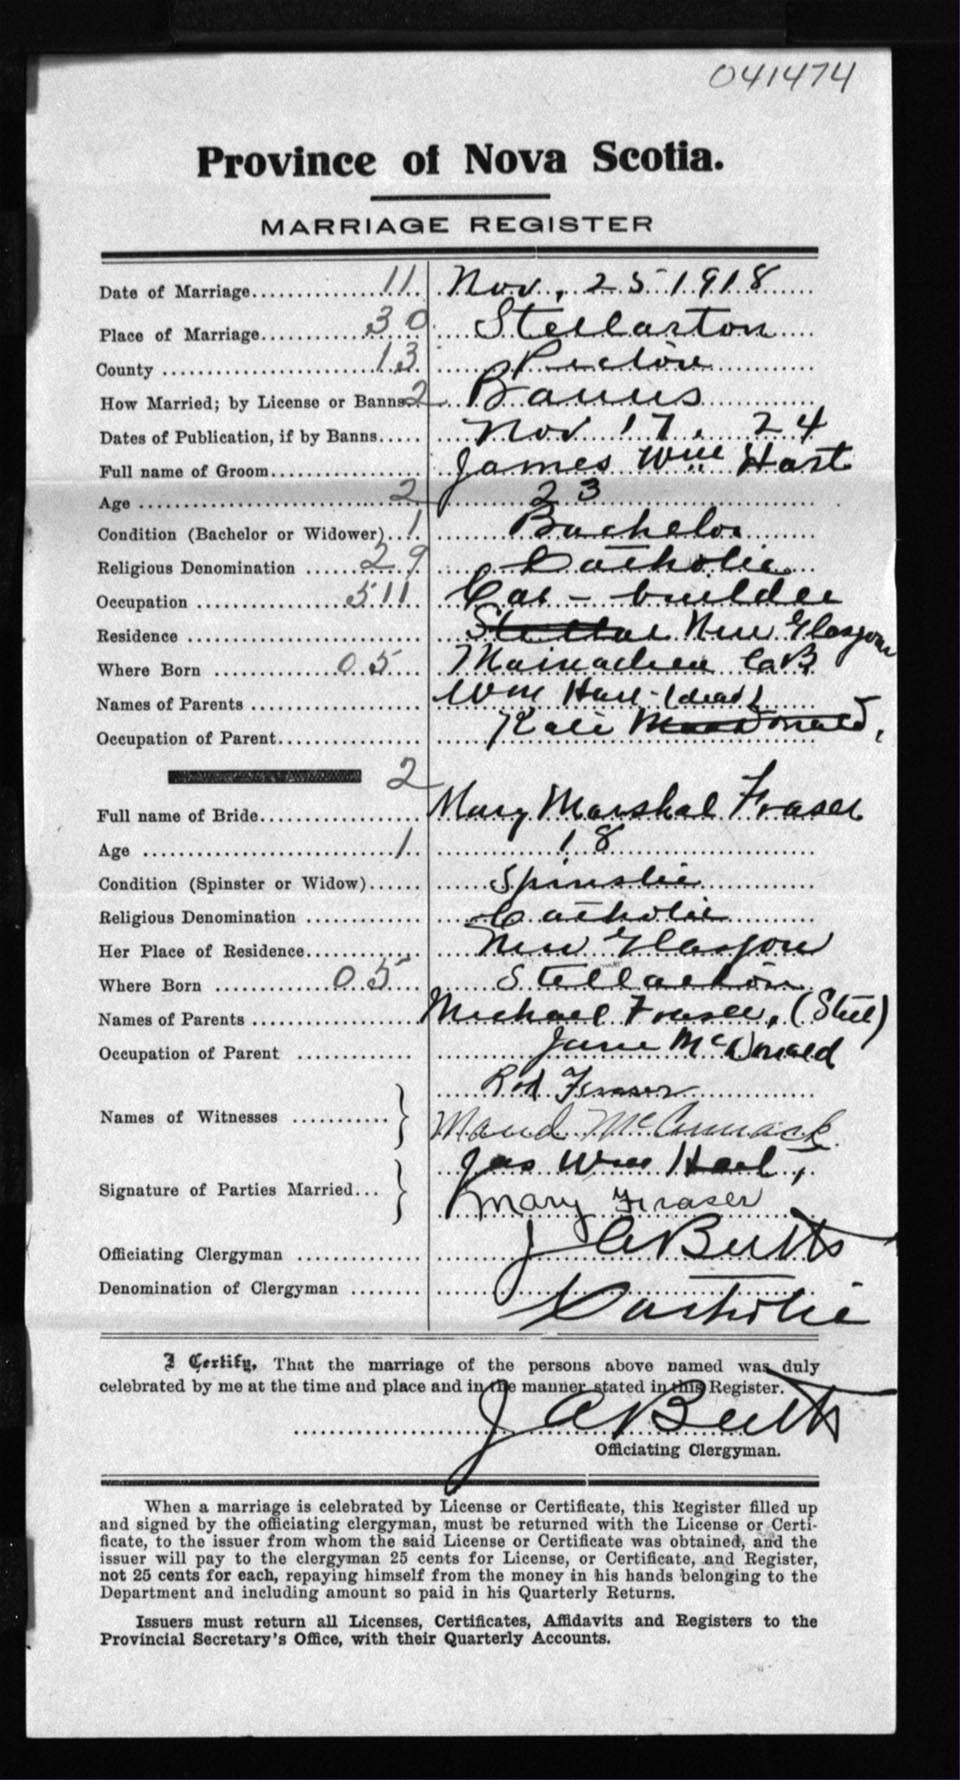 041474
Province of Nova Scotia.
MARRIAGE REGISTER
Date of Marriage 11 Nov. 25 1918
Place of Marriage 30 Stellarton
County 13 Pictou
How Married; by License or Banns 2 Banns
Dates of Publication, if by Banns Nov 17, 24
Full name of Groom James Wm Hart
Age 2 23
Condition (Bachelor or Widower) 1 Bachelor
Religious Denomination 29 Catholic
Occupation 511 Car-builder
Residence New Glasgow
Where Born 05 CB
Names of Parents Wm Hart (dead)
Occupation of Parent Katie MacDonald,
2
Full name of Bride Mary Marshal Fraser
Age 1 18
Condition (Spinster or Widow) Spinster
Religious Denomination Catholic
Her Place of Residence New Glasgow
Where Born 05 Stellarton
Names of Parents Michael Fraser,
Occupation of Parent Jane McDonald
Rod Fraser
Names of Witnesses Maud McCormack
Jas Wm Hart,
Signature of Parties Married Mary Fraser
Officiating Clergyman J A Butts
Denomination of Clergyman Catholic
I Certify, That the marriage of the persons above named was duly
celebrated by me at the time and place and in the manner stated in this Register.
J A Butts
Officiating Clergyman.
When a marriage is celebrated by License or Certificate, this Register filled up
and signed by the officiating clergyman, must be returned with the License or Certi-
ficate, to the issuer from whom the said License or Certificate was obtained, and the
issuer will pay to the clergyman 25 cents for License, or Certificate, and Register,
not 25 cents for each, repaying himself from the money in his hands belonging to the
Department and including amount so paid in his Quarterly Returns.
Issuers must return all Licenses, Certificates, Affidavits and Registers to the
Provincial Secretary's Office, with their Quarterly Accounts.